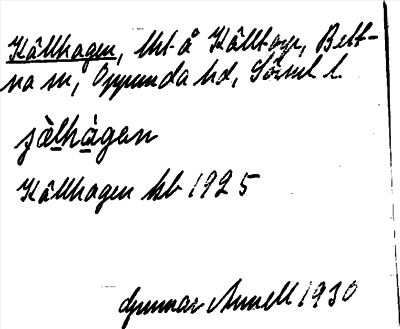 Källhagen, lht å Källtorp, Bett-
na sn, Oppunda hd, Söml l.
jàlhàgan
Källhagen hb 1925
Gunnar Annell 1930